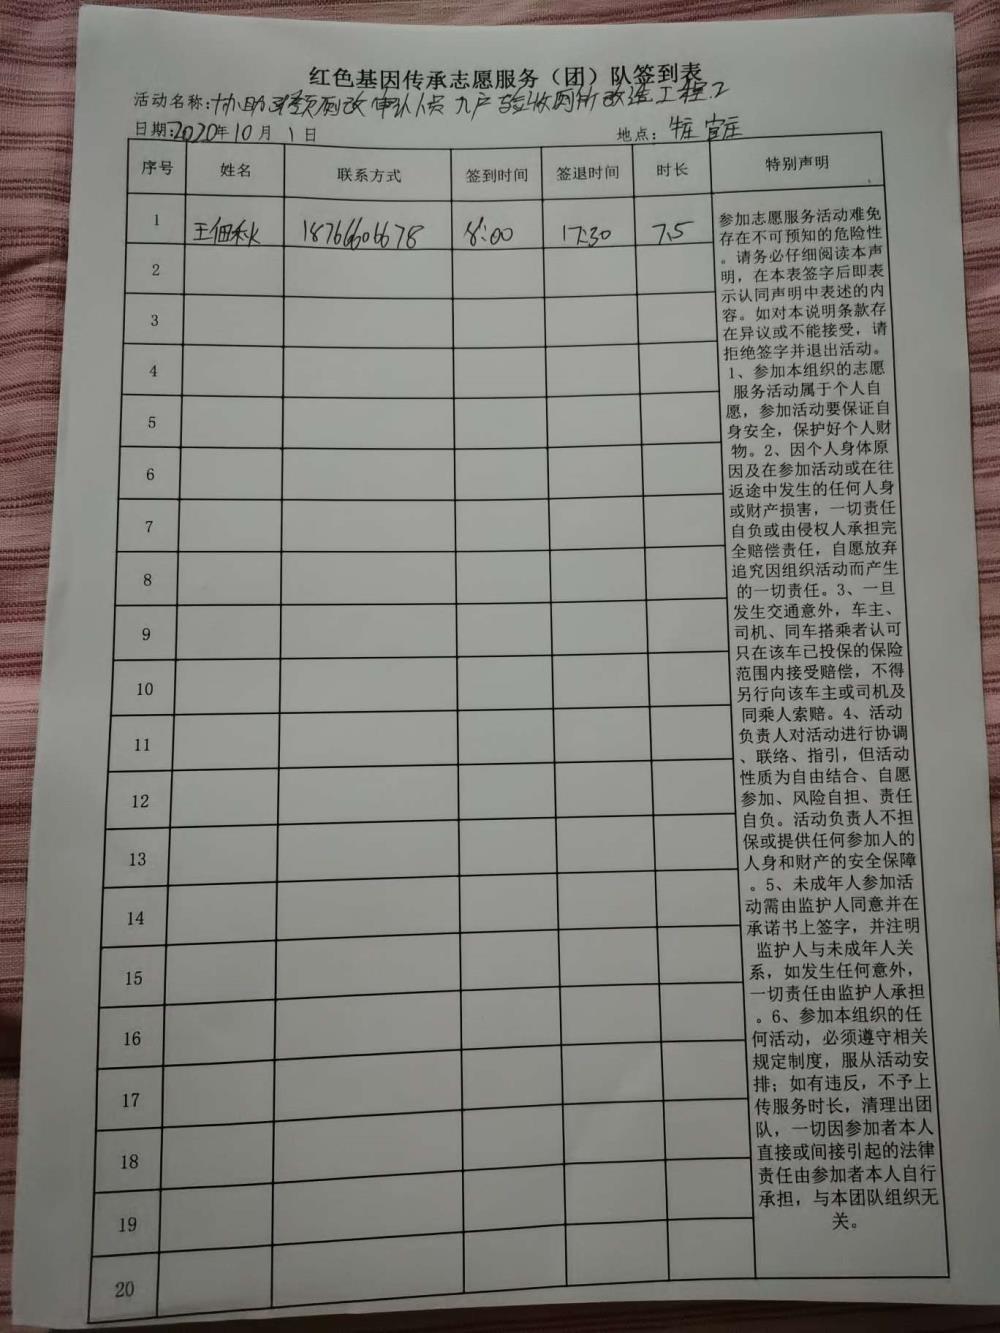 红色基因传承志愿服务（团）队签到表
活动名称:协助 厕改审计人员 入户验收厕所改造工程.2
日期:2020年10月1日
地点:
序号 姓名 联系方式 签到时间 签退时间 时长 特别声明
1 王佃秋 18766606678 8:00 17:30 7.5
2
3
4
5
6
7
8
9
10
11
12
13
14
15
16
17
18
19
20
参加志愿服务活动难免
存在不可预知的危险性
。请务必仔细阅读本声
明，在本表签字后即表
示认同声明中表述的内
容。如对本说明条款存
在异议或不能接受，请
拒绝签字并退出活动。
1、参加本组织的志愿
服务活动属于个人自
愿，参加活动要保证自
身安全，保护好个人财
物。2、因个人身体原
因及在参加活动或在往
返途中发生的任何人身
或财产损害，一切责任
自负或由侵权人承担完
全赔偿责任，自愿放弃
追究因组织活动而产生
的一切责任。3、一旦
发生交通意外，车主、
司机、同车搭乘者认可
只在该车已投保的保险
范围内接受赔偿，不得
另行向该车主或司机及
同乘人索赔。4、活动
负责人对活动进行协调
、联络、指引，但活动
性质为自由结合、自愿
参加、风险自担、责任
自负。活动负责人不担
保或提供任何参加人的
人身和财产的安全保障
。5、未成年人参加活
动需由监护人同意并在
承诺书上签字，并注明
监护人与未成年人关
系，如发生任何意外，
一切责任由监护人承担
。6、参加本组织的任
何活动，必须遵守相关
规定制度，服从活动安
排；如有违反，不予上
传服务时长，清理出团
队，一切因参加者本人
直接或间接引起的法律
责任由参加者本人自行
承担，与本团队组织无
关。